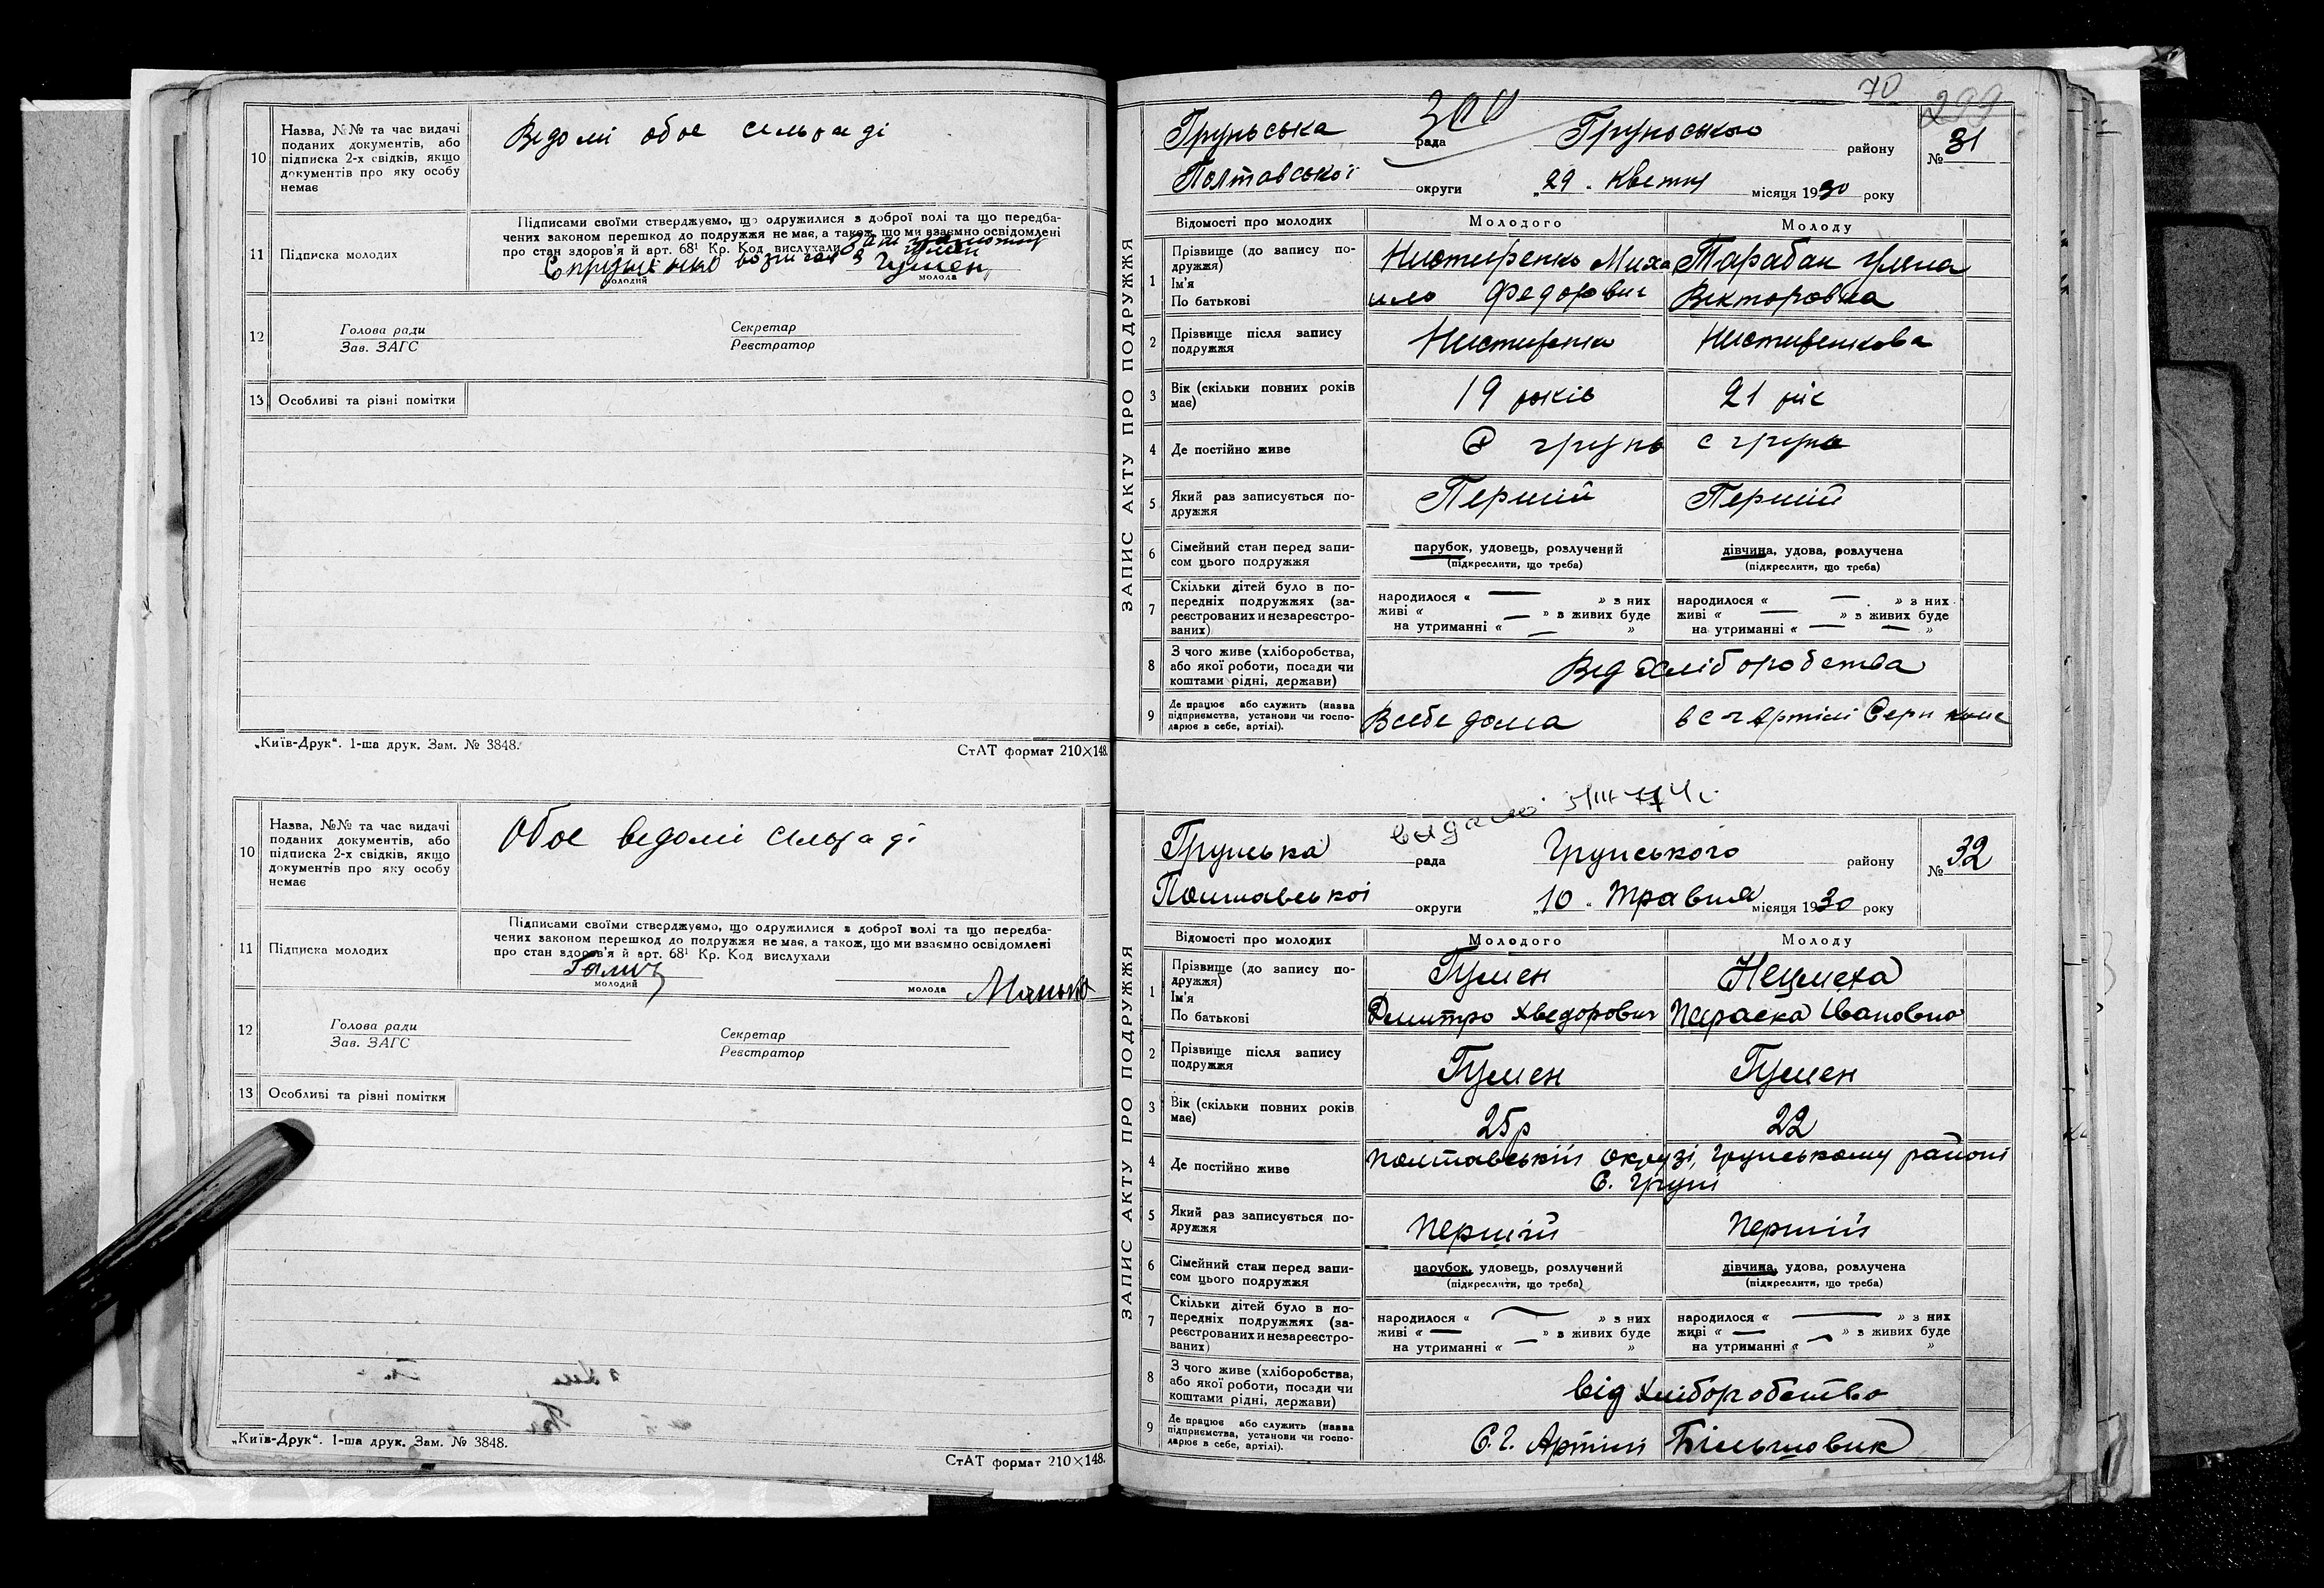 10
Назва, №№ та час видачі
поданих документів, або
підписка 2-х свідків, якщо
документів про яку особу
немає
Ведомі обое сельраді
11
Підписка молодих
Підписами своїми стверджуємо, що одружилися з доброї волі та що передба-
чених законом перешкод до подружжя немає, а також, що ми взаємно освідомлені
про стан здоров'я й арт. 68¹ Кр. Код вислухали
Гумен
молодий
молода
12
Голова ради
Зав. ЗАГС
Секретар
Реєстратор
13
Особливі та різні помітки
„Київ-Друк“. 1-ша друк. Зам. № 3848.
СтАТ формат 210×148.
10
Назва, №№ та час видачі
поданих документів, або
підписка 2-х свідків, якщо
документів про яку особу
немає
Обое ведомі сільраді
11
Підписка молодих
Підписами своїми стверджуємо, що одружилися з доброї волі та що передба-
чених законом перешкод до подружжя немає, а також, що ми взаємно освідомлені
про стан здоров'я й арт. 68¹ Кр. Код вислухали
молодий
молода
12
Голова ради
Зав. ЗАГС
Секретар
Реєстратор
13
Особливі та різні помітки
„Київ-Друк“. 1-ша друк. Зам. № 3848.
СтАТ формат 210×148.
70
299
ЗАПИС АКТУ ПРО ПОДРУЖЖЯ
Груньська рада Груньського району № 31
Полтавської округи „29“ Квітня місяця 1930 року
Відомості про молодих
Молодого
Молоду
1
Прізвище (до запису по-
дружжя)
Ім'я
По батькові
Нистиренко Миха
ило Федорович
Тарабан Уляна
Викторовна
2
Прізвище після запису
подружжя
Нистиренко
Нистиренкова
3
Вік (скільки повних років
має)
19 років
21 рік
4
Де постійно живе
С грунь
с грунь
5
Який раз записується по-
дружжя
Перший
Перший
6
Сімейний стан перед запи-
сом цього подружжя
парубок, удовець, розлучений
(підкреслити, що треба)
дівчина, удова, розлучена
(підкреслити, що треба)
7
Скільки дітей було в по-
передніх подружжях (за-
реєстрованих и незареєстро-
ваних)
народилося « — » з них
живі « — » в живих буде
на утриманні « — »
народилося « — » з них
живі « — » з живих буде
на утриманні « — »
8
З чого живе (хліборобства,
або якої роботи, посади чи
коштами рідні, держави)
Від хліборобства
9
Де працює або служить (назва
підприємства, установи чи госпо-
дарює в себе, артілі).
В себе дома
в с г Артілі Серп
5/III-74
ЗАПИС АКТУ ПРО ПОДРУЖЖЯ
Грунська рада Грунського району № 32
Полтавської округи „10“ Травня місяця 1930 року
Відомості про молодих
Молодого
Молоду
1
Прізвище (до запису по-
дружжя)
Ім'я
По батькові
Гумен
Дмитро Хведорович
Нецмеха
Параска Івановна
2
Прізвище після запису
подружжя
Гумен
Гумен
3
Вік (скільки повних років
має)
25р
22
4
Де постійно живе
Полтавській окрузі, Грунському районі
С. Груні
5
Який раз записується по-
дружжя
Перший
Перший
6
Сімейний стан перед запи-
сом цього подружжя
парубок, удовець, розлучений
(підкреслити, що треба)
дівчина, удова, розлучена
(підкреслити, що треба)
7
Скільки дітей було в по-
передніх подружжях (за-
реєстрованих и незареєстро-
ваних)
народилося « — » з них
живі « — » в живих буде
на утриманні « — »
народилося « — » з них
живі « — » з живих буде
на утриманні « — »
8
З чого живе (хліборобства,
або якої роботи, посади чи
коштами рідні, держави)
від хліборобства
9
Де працює або служить (назва
підприємства, установи чи госпо-
дарює в себе, артілі).
С. г. Артілі Більшовик